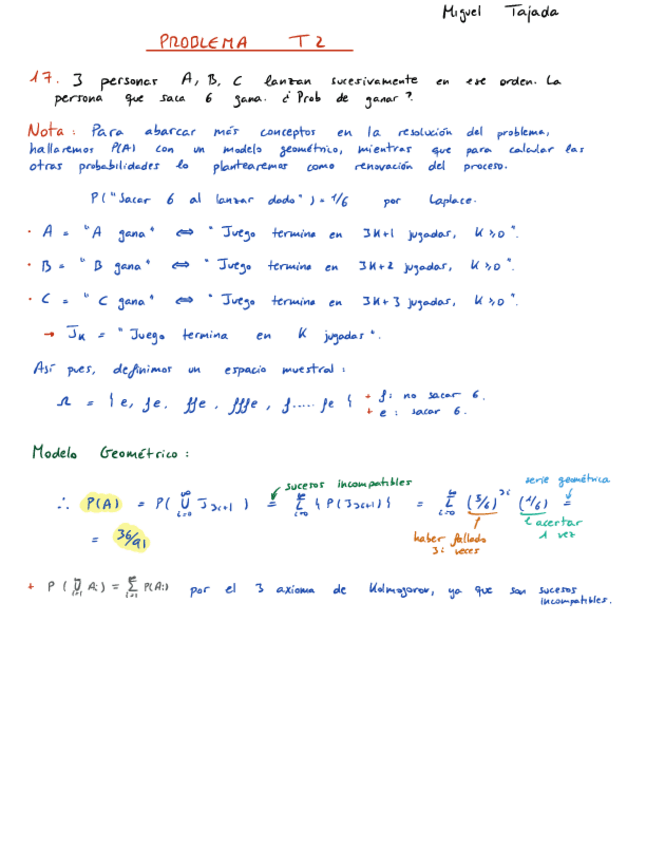 Miguel Tajada
PROBLEMA T2
17. 3 personas A, B, C lanzan sucesivamente en ese orden. La
persona que saca 6 gana. ¿Prob de ganar?
Nota: Para abarcar más conceptos en la resolución del problema,
hallaremos P(A) con un modelo geométrico, mientras que para calcular las
otras probabilidades lo plantearemos como renovación del proceso.
P("Sacar 6 al lanzar dado") = 1/6 por Laplace.
· A = "A gana" ⇔ "Juego termina en 3K+1 jugadas, K≥0".
· B = "B gana" ⇔ "Juego termina en 3K+2 jugadas, K≥0".
· C = "C gana" ⇔ "Juego termina en 3K+3 jugadas, K≥0".
→ J_K = "Juego termina en K jugadas".
Así pues, definimos un espacio muestral:
Ω = { e, fe, ffe, fffe, f.....fe { + f: no sacar 6.
+ e: sacar 6.
Modelo Geométrico:
sucesos incompatibles
serie geométrica
∴ P(A) = P( ⋃_{i=0}^∞ J_{3i+1} ) = Σ_{i=0}^∞ { P(J_{3i+1}) } = Σ_{i=0}^∞ (5/6)^{3i} (1/6) =
= 36/91
haber fallado
3i veces
acertar
1 vez
+ P( ⋃_{i=1}^∞ A_i ) = Σ_{i=1}^∞ P(A_i) por el 3 axioma de Kolmogorov, ya que son sucesos
incompatibles.